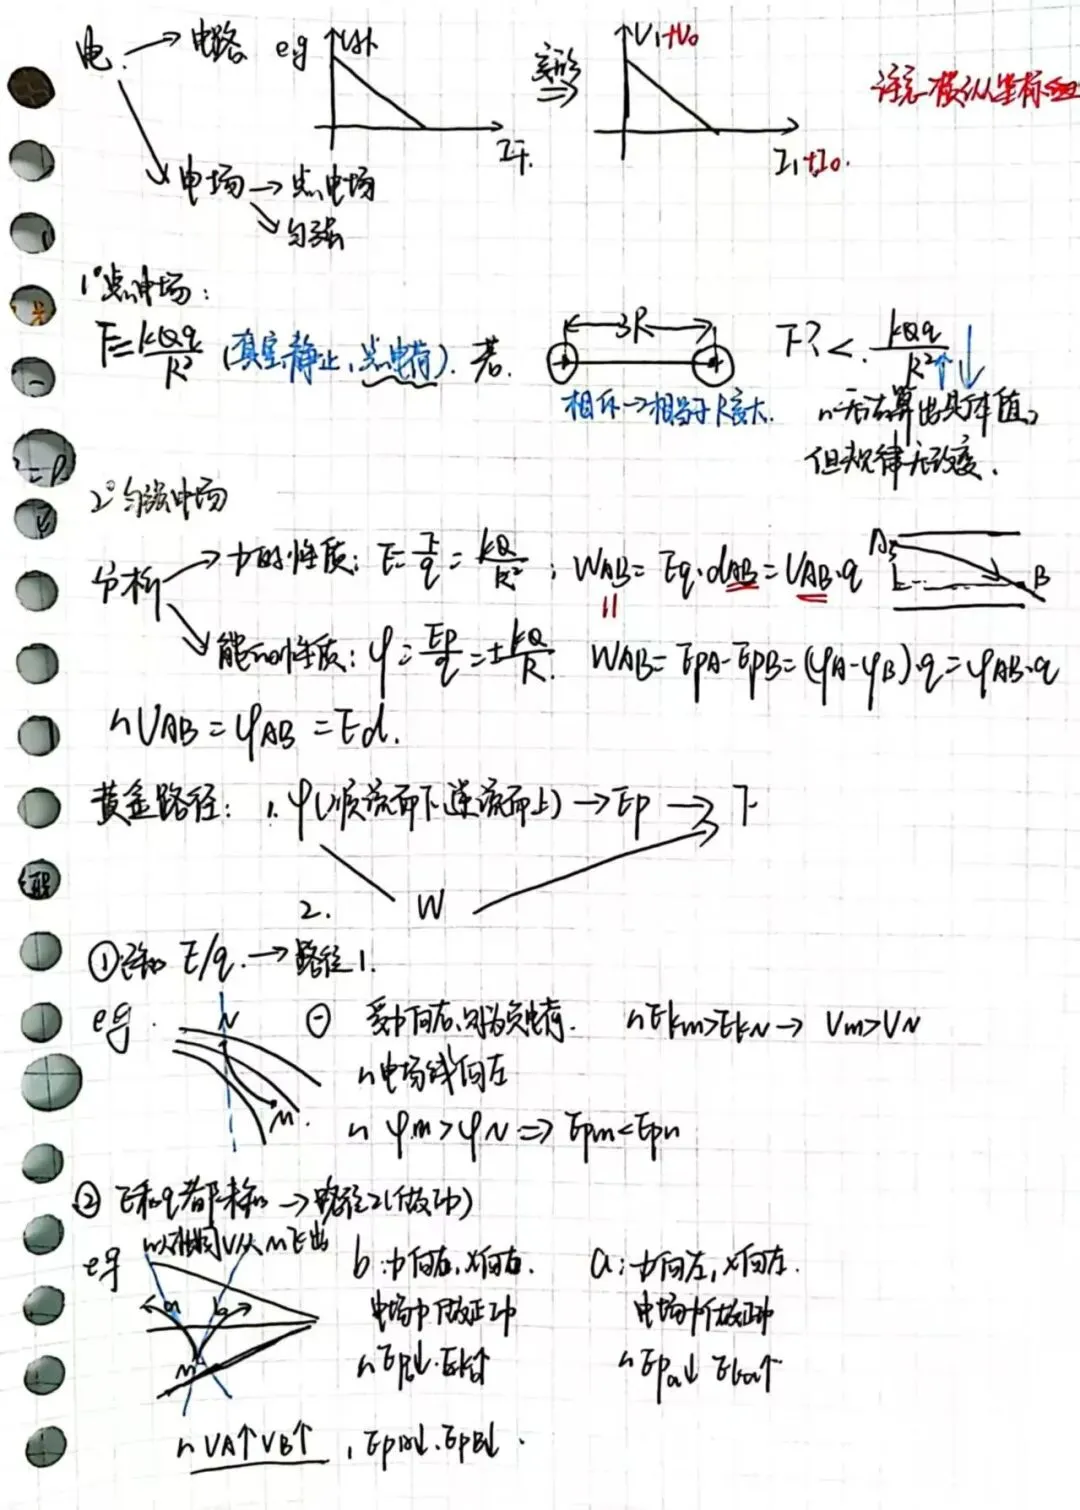 电 → 电路 eg U外 I干 变形 ⇒ U₁+U₀ I₁+I₀ 注意横纵坐标
电场 → 点电场
匀强
1°点电场:
F=kQq/R² (真空静止,点电荷). 若. 3R F?<. kQq/R²↑↓
相斥→相当于R变大. n无法算出具体值,
但规律无改变.
2°匀强电场
分析 力的性质: E=F/q=kQ/R²; WAB=Eq·dAB=UAB·q A B
能的性质: φ=Ep/q=±kQ/R. WAB=EpA-EpB=(φA-φB)·q=φAB·q
n UAB=φAB=Ed.
黄金路径: 1. φ(顺流而下逆流而上)→Ep→F
2. W
①已知 E/q.→路径1.
eg. N M. ⊖ 受力向右,则为负电荷. n Ekm>EkN→ Vm>VN
n电场线向左
n φm>φN⇒Epm<Epn
②E和q都未知→路径2(做功)
eg 以相同V从M飞出 a b M b:力向右,x向右. a:力向左,x向左.
电场力做正功 电场力做正功
n Epb↓.Ekb↑ n Epa↓ Eka↑
n VA↑VB↑, EpA↓.EpB↓.